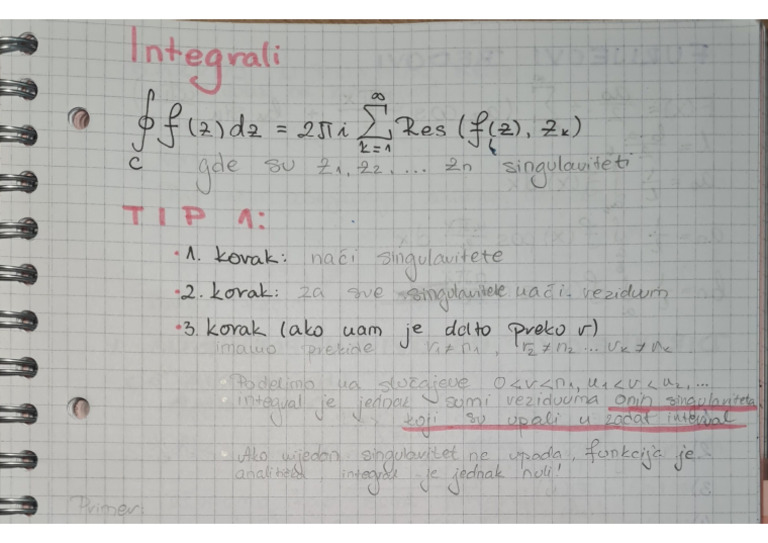 Integrali
∮ f(z)dz = 2πi ∞ Σ k=1 Res (f(z), zk)
C gde su z1, z2, ... zn singulariteti
TIP 1:
• 1. korak: naći singularitete
• 2. korak: za sve singularitete naći reziduum
• 3. korak (ako nam je dato preko r)
imamo prekide r1≠n1, r2≠n2 ... rk≠nk
• Podelimo na slučajeve 0<r<n1, n1<r<n2, ...
• integral je jednak sumi reziduuma onih singulariteta
koji su upali u zadat integral
• Ako nijedan singularitet ne upada, funkcija je
integral je jednak nuli!
Primer: